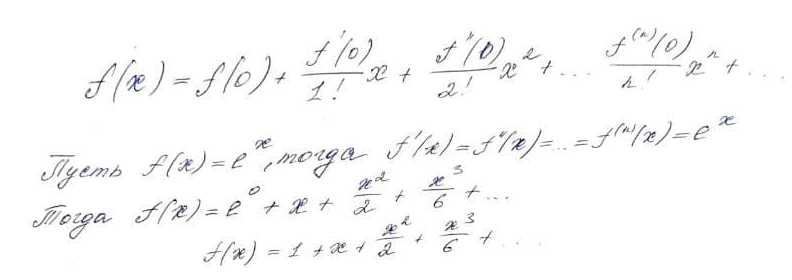 f(x) = f(0) + f'(0)/1! x + f''(0)/2! x² + ... f⁽ⁿ⁾(0)/n! xⁿ + ...
Пусть f(x) = eˣ, тогда f'(x) = f''(x) = ... = f⁽ⁿ⁾(x) = eˣ
Тогда f(x) = e⁰ + x + x²/2 + x³/6 + ...
f(x) = 1 + x + x²/2 + x³/6 + ...